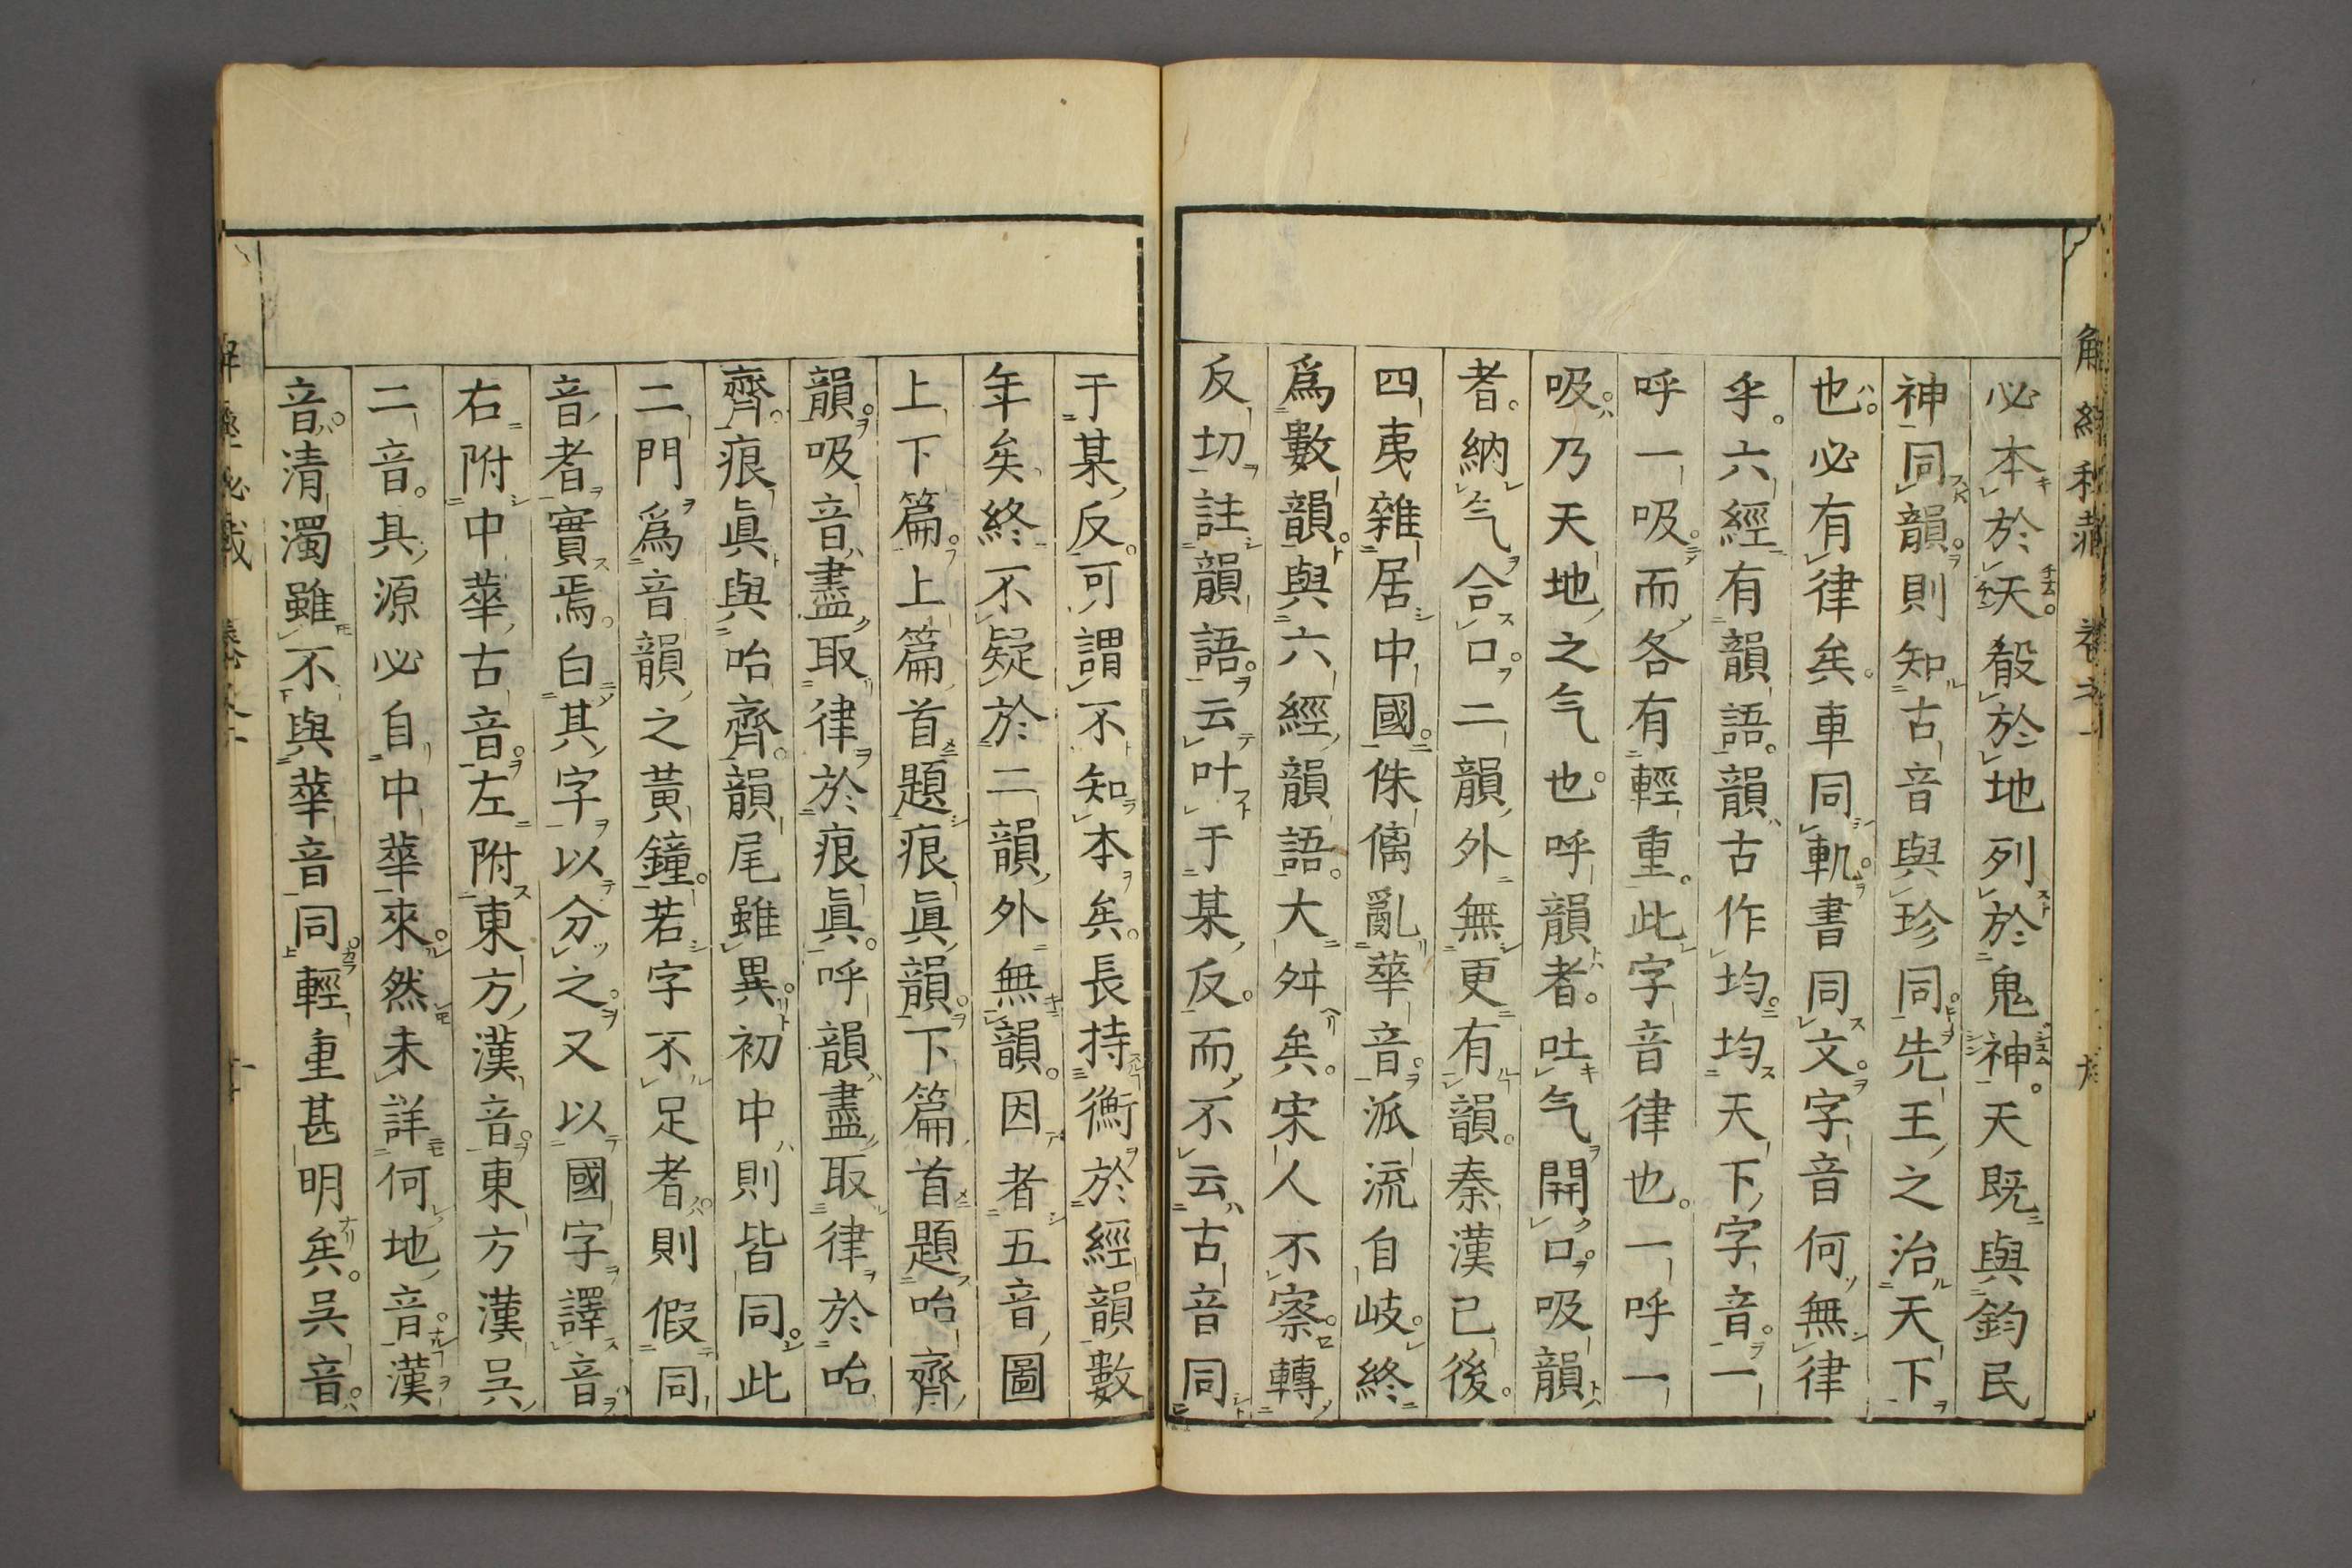 必本於天殽於地列於鬼神。天既與鈞民
神同韻。則知古音與珍同。先王之治天下
也。必有律矣。車同軌。書同文。字音何無律
乎。六經有韻語。韻古作均。均天下字音。一
呼一吸。而各有輕重。此字音律也。一呼一
吸。乃天地之气也。呼韻者。吐气開口。吸韻
者。納气合口。二韻外無更有韻。秦漢已後。
四夷雜居中國。侏㒧亂華音。派流自岐。終
爲數韻。與六經韻語。大舛矣。宋人不察。轉
反切註韻語。云叶于某反。而不云古音同
于某反。可謂不知本矣。長持衡於經韻數
年矣。終不疑於二韻外無韻。因著五音圖
上下篇。上篇首題痕眞韻。下篇首題咍齊
韻。吸音盡取律於痕眞。呼韻盡取律於咍
齊。痕眞與咍齊。韻尾雖異。初中則皆同。此
二門爲音韻之黃鐘。若字不足者。則假同
音者實焉。白其字以分之。又以國字譯音
右附中華古音。左附東方漢音。東方漢吳
二音。其源必自中華來。然未詳何地音。漢
音。清濁雖不與華音同。輕重甚明矣。吳音。